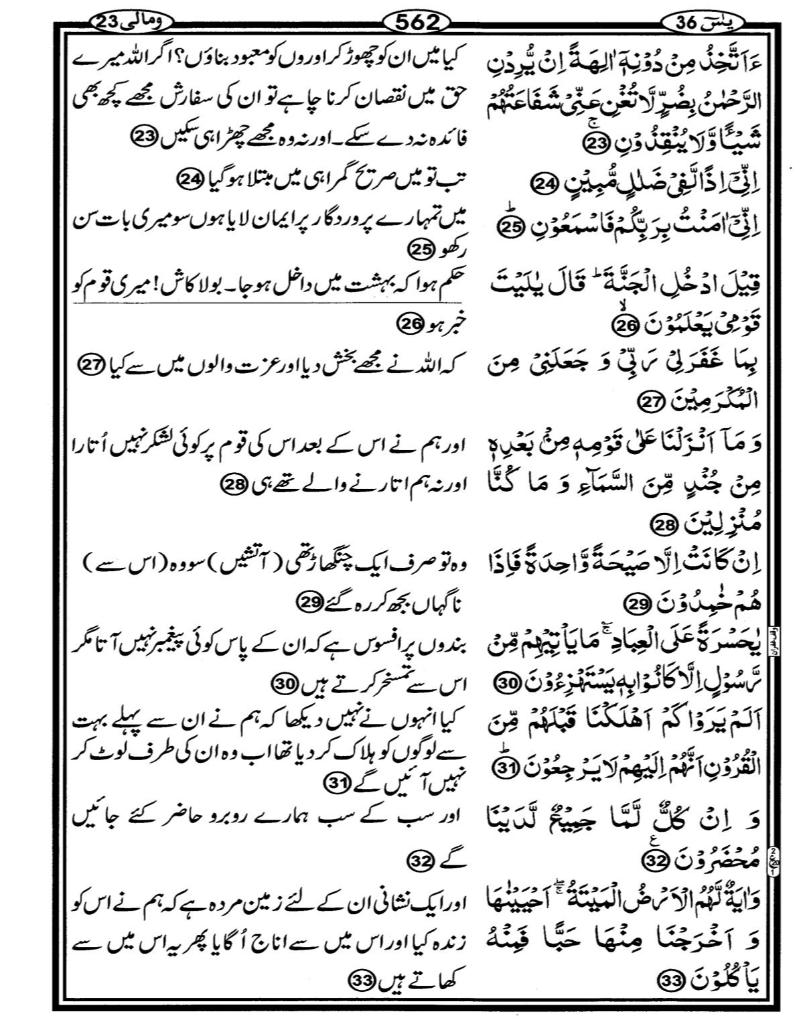 یٰسٓ 36
562
ومالی 23
ءَاَتَّخِذُ مِنْ دُوْنِهٖۤ اٰلِهَةً اِنْ يُّرِدْنِ
الرَّحْمٰنُ بِضُرٍّ لَّا تُغْنِ عَنِّيْ شَفَاعَتُهُمْ
شَيْـًٔا وَّلَا يُنْقِذُوْنِ ۚ 23
اِنِّيْۤ اِذًا لَّفِيْ ضَلٰلٍ مُّبِيْنٍ 24
اِنِّيْۤ اٰمَنْتُ بِرَبِّكُمْ فَاسْمَعُوْنِ ؕ 25
قِيْلَ ادْخُلِ الْجَنَّةَ ؕ قَالَ يٰلَيْتَ
قَوْمِيْ يَعْلَمُوْنَ ۙ 26
بِمَا غَفَرَ لِيْ رَبِّيْ وَ جَعَلَنِيْ مِنَ
الْمُكْرَمِيْنَ 27
وَ مَاۤ اَنْزَلْنَا عَلٰى قَوْمِهٖ مِنْۢ بَعْدِهٖ
مِنْ جُنْدٍ مِّنَ السَّمَآءِ وَ مَا كُنَّا
مُنْزِلِيْنَ 28
اِنْ كَانَتْ اِلَّا صَيْحَةً وَّاحِدَةً فَاِذَا
هُمْ خٰمِدُوْنَ 29
يٰحَسْرَةً عَلَى الْعِبَادِ ۚ مَا يَاْتِيْهِمْ مِّنْ
رَّسُوْلٍ اِلَّا كَانُوْا بِهٖ يَسْتَهْزِءُوْنَ 30
اَلَمْ يَرَوْا كَمْ اَهْلَكْنَا قَبْلَهُمْ مِّنَ
الْقُرُوْنِ اَنَّهُمْ اِلَيْهِمْ لَا يَرْجِعُوْنَ ؕ 31
وَ اِنْ كُلٌّ لَّمَّا جَمِيْعٌ لَّدَيْنَا
مُحْضَرُوْنَ ۧ 32
وَاٰيَةٌ لَّهُمُ الْاَرْضُ الْمَيْتَةُ ۖۚ اَحْيَيْنٰهَا
وَ اَخْرَجْنَا مِنْهَا حَبًّا فَمِنْهُ
يَاْكُلُوْنَ 33
کیا میں ان کو چھوڑ کر اوروں کو معبود بناؤں؟ اگر اللہ میرے
حق میں نقصان کرنا چاہے تو ان کی سفارش مجھے کچھ بھی
فائدہ نہ دے سکے۔ اور نہ وہ مجھے چھڑا ہی سکیں 23
تب تو میں صریح گمراہی میں مبتلا ہو گیا 24
میں تمہارے پروردگار پر ایمان لایا ہوں سو میری بات سن
رکھو 25
حکم ہوا کہ بہشت میں داخل ہو جا۔ بولا کاش! میری قوم کو
خبر ہو 26
کہ اللہ نے مجھے بخش دیا اور عزت والوں میں سے کیا 27
اور ہم نے اس کے بعد اس کی قوم پر کوئی لشکر نہیں اُتارا
اور نہ ہم اتارنے والے تھے ہی 28
وہ تو صرف ایک چنگھاڑ تھی (آتشیں) سو وہ (اس سے)
ناگہاں بجھ کر رہ گئے 29
بندوں پر افسوس ہے کہ ان کے پاس کوئی پیغمبر نہیں آتا مگر
اس سے تمسخر کرتے ہیں 30
کیا انہوں نے نہیں دیکھا کہ ہم نے ان سے پہلے بہت
سے لوگوں کو ہلاک کر دیا تھا اب وہ ان کی طرف لوٹ کر
نہیں آئیں گے 31
اور سب کے سب ہمارے روبرو حاضر کئے جائیں
گے 32
اور ایک نشانی ان کے لئے زمین مردہ ہے کہ ہم نے اس کو
زندہ کیا اور اس میں سے اناج اُگایا پھر یہ اس میں سے
کھاتے ہیں 33